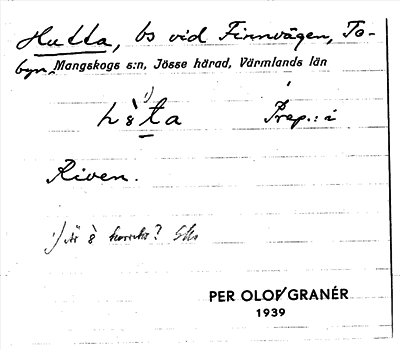 Hutta, bs vid Finnvägen, To-
byn, Mangskogs s:n, Jösse härad, Värmlands län
h 8̀ ¹⁾ t a Prep.: i
Riven.
¹⁾ är 8̀ korrekt?
PER OLOF GRANÉR
1939